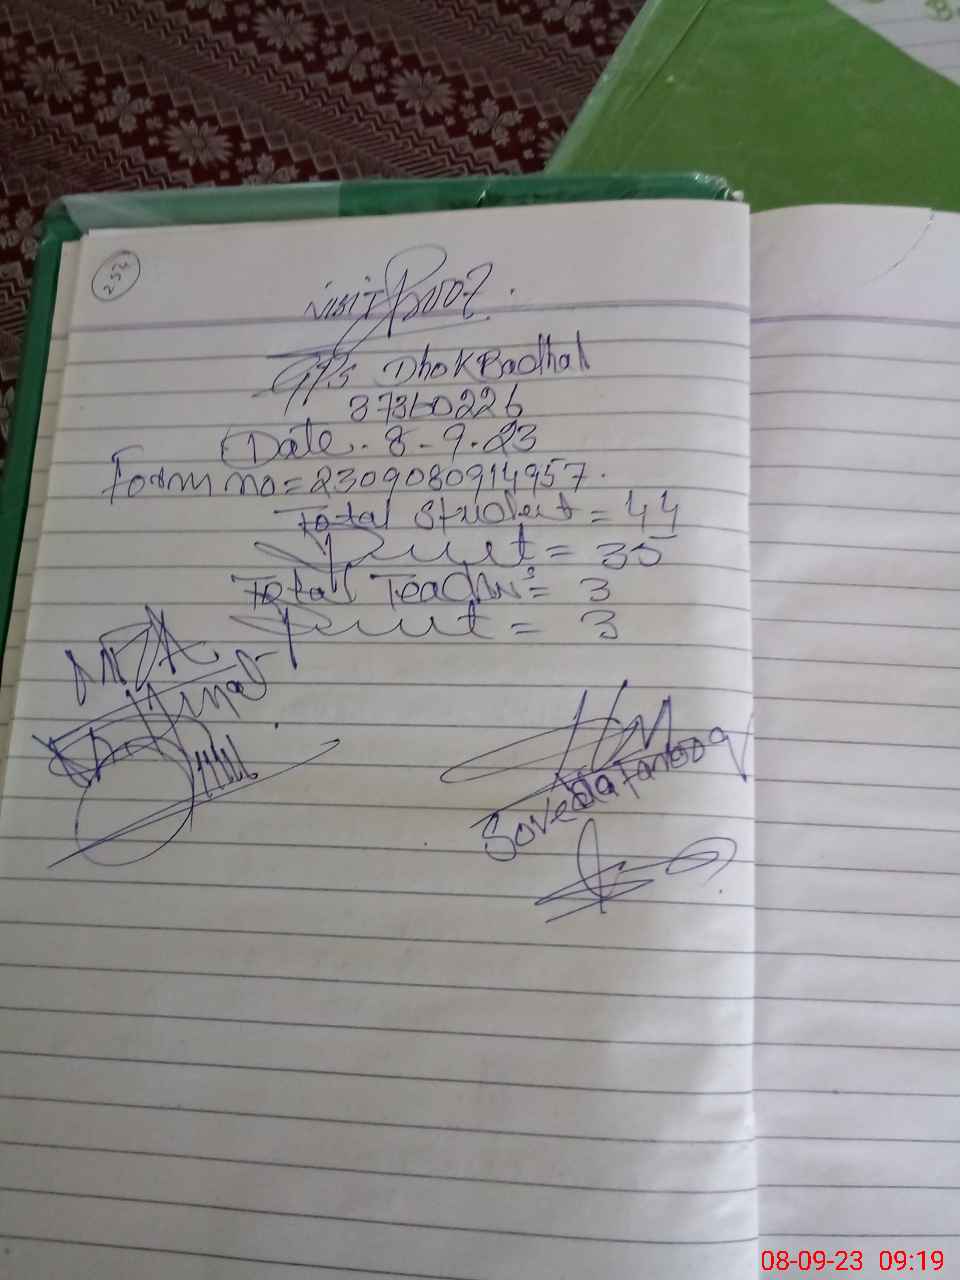 252
Visit Proof.
GPS Dhok Badhal
37360226
Date. 8-9-23
Form no = 2309080914957.
Total Student = 44
Present = 35
Total Teachers = 3
Present = 3
MEA
HM
Farooq
08-09-23 09:19